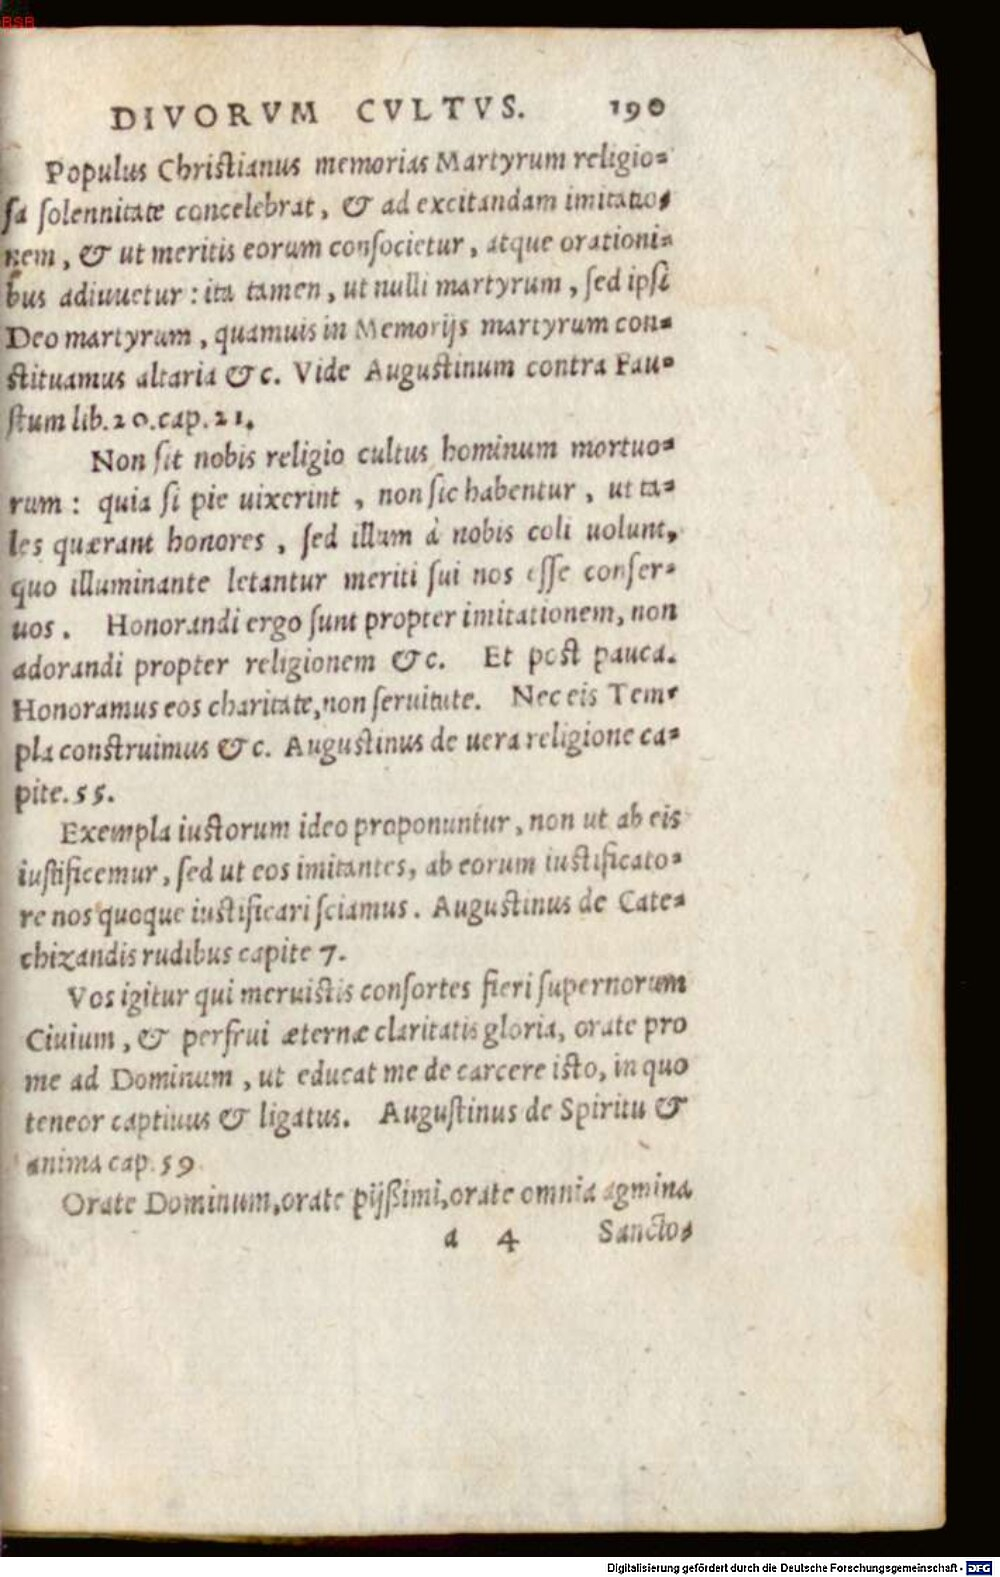 RSR
DIVORVM CVLTVS. 190
Populus Christianus memorias Martyrum religio=
sa solennitate concelebrat, & ad excitandam imitatio=
nem, & ut meritis eorum consocietur, atque orationi=
bus adiuuetur: ita tamen, ut nulli martyrum, sed ipsi
Deo martyrum, quamuis in Memorijs martyrum con=
stituamus altaria &c. Vide Augustinum contra Fau=
stum lib. 20. cap. 21.
Non sit nobis religio cultus hominum mortuo=
rum: quia si pie uixerint, non sic habentur, ut ta=
les quærant honores, sed illum à nobis coli uolunt,
quo illuminante letantur meriti sui nos esse conser=
uos. Honorandi ergo sunt propter imitationem, non
adorandi propter religionem &c. Et post pauca.
Honoramus eos charitate, non seruitute. Nec eis Tem=
pla construimus &c. Augustinus de uera religione ca=
pite. 55.
Exempla iustorum ideo proponuntur, non ut ab eis
iustificemur, sed ut eos imitantes, ab eorum iustificato=
re nos quoque iustificari sciamus. Augustinus de Cate=
chizandis rudibus capite 7.
Vos igitur qui meruistis consortes fieri supernorum
Ciuium, & perfrui æternæ claritatis gloria, orate pro
me ad Dominum, ut educat me de carcere isto, in quo
teneor captiuus & ligatus. Augustinus de Spiritu &
anima cap. 59
Orate Dominum, orate pijßimi, orate omnia agmina
a 4 Sancto=
Digitalisierung gefördert durch die Deutsche Forschungsgemeinschaft - DFG